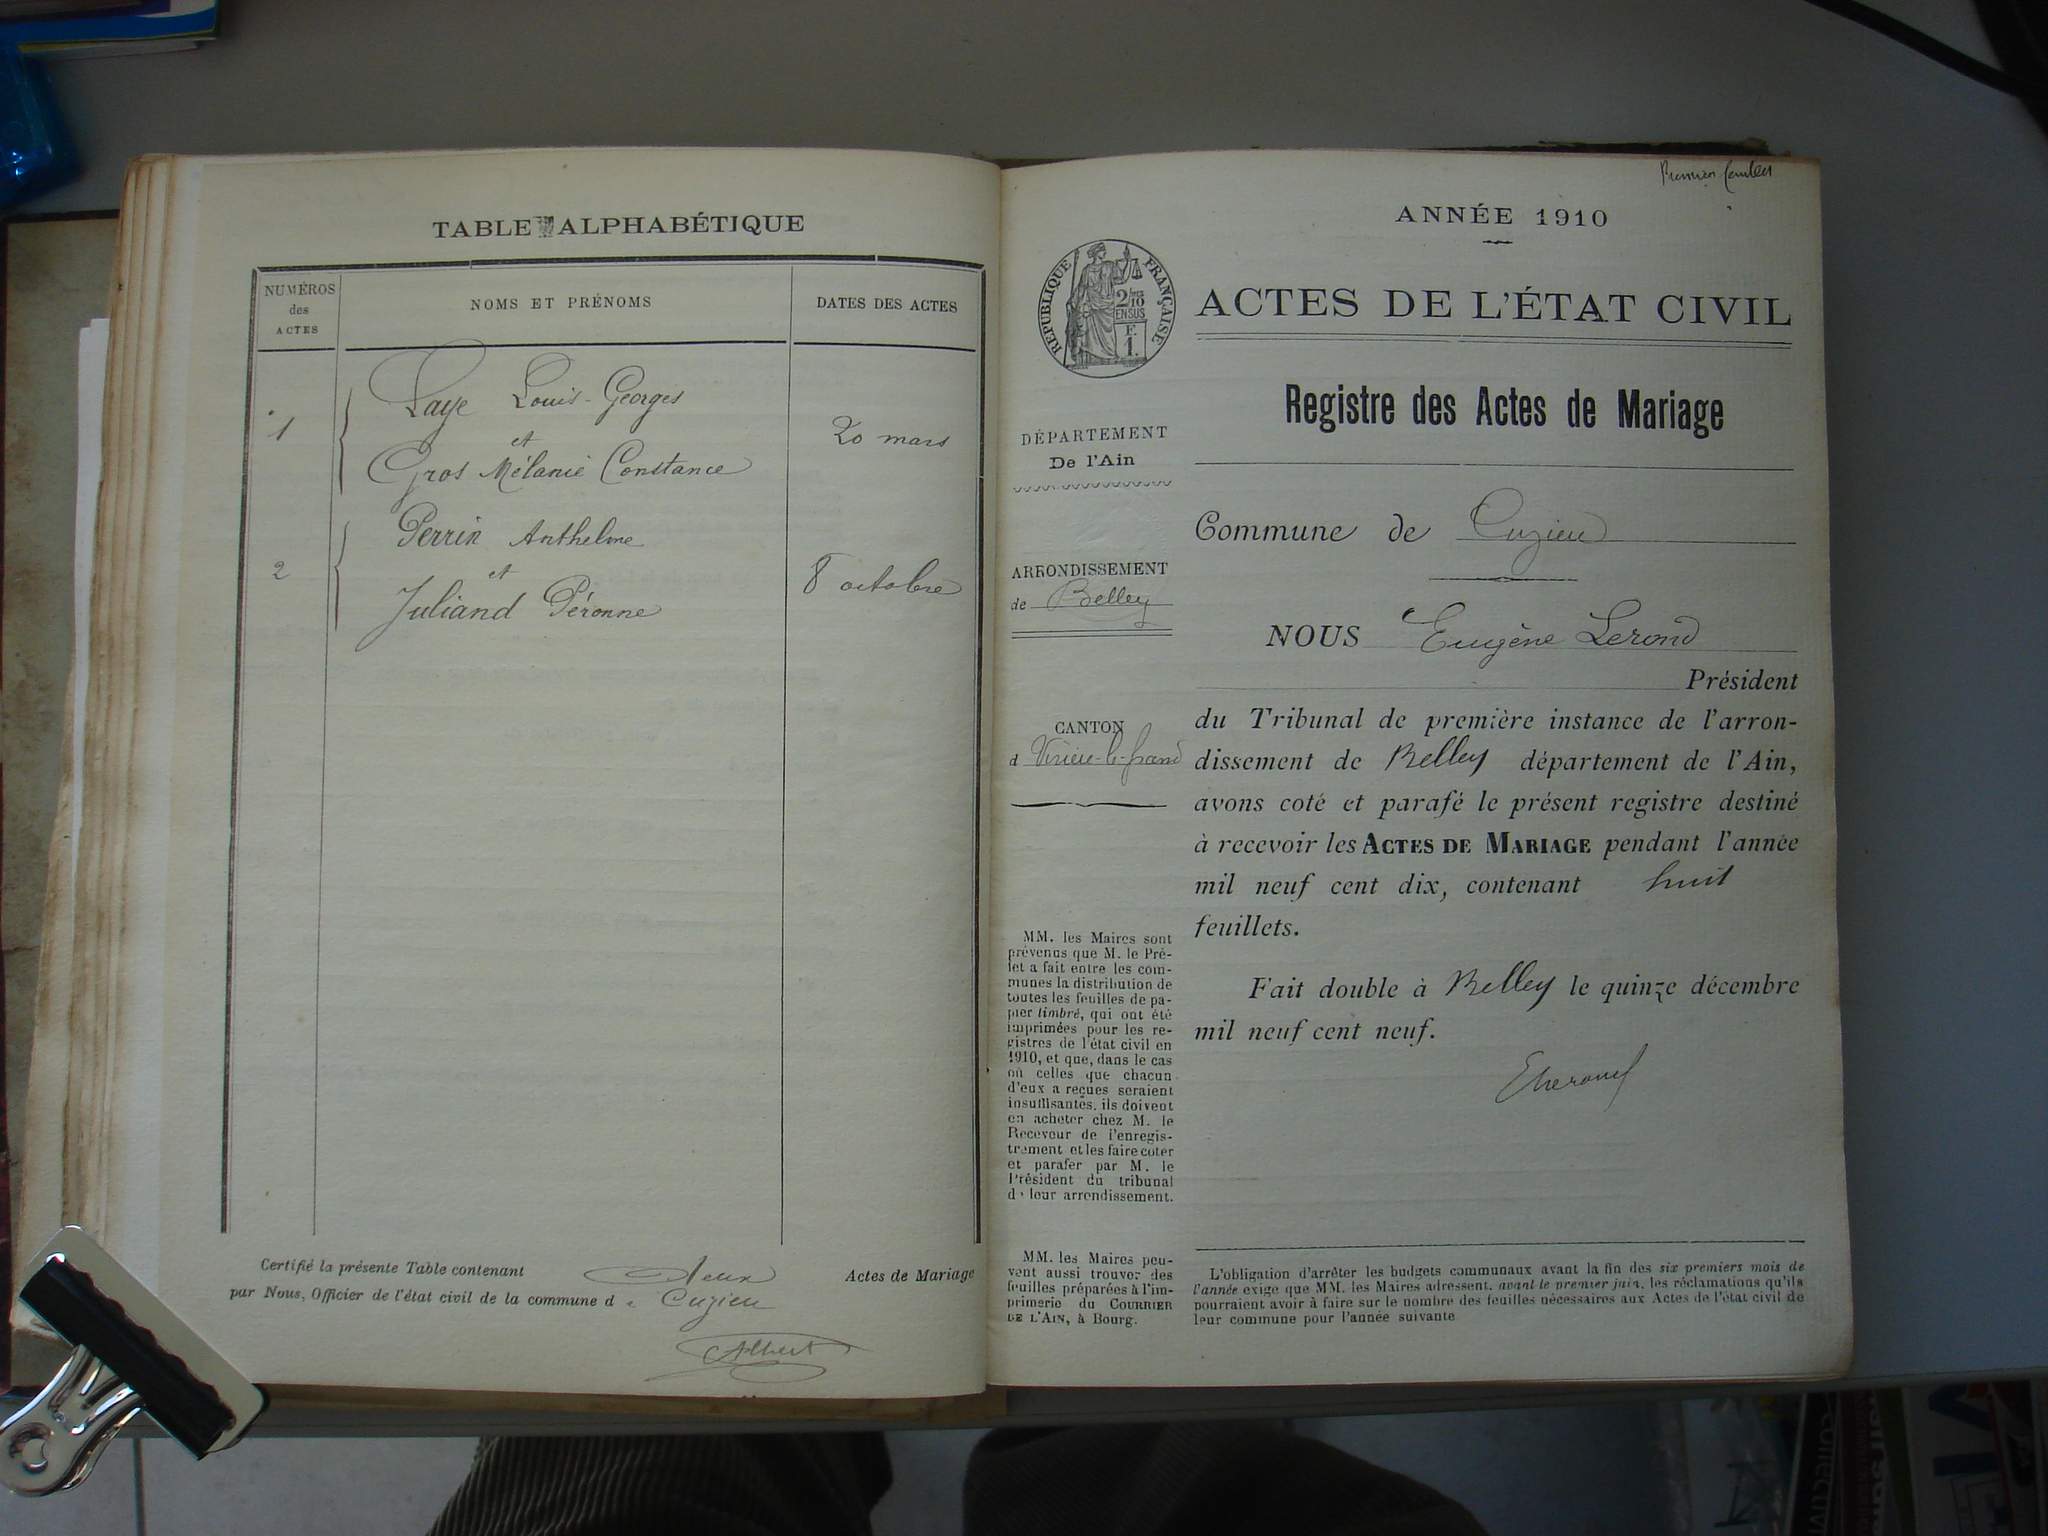 TABLE ALPHABÉTIQUE
NUMÉROS
des
ACTES
NOMS ET PRÉNOMS
DATES DES ACTES
1
Laye Louis-Georges
et
Gros Mélanie Constance
20 mars
2
Perrin Anthelme
et
Juliand Péronne
8 octobre
Certifié la présente Table contenant deux Actes de Mariage
par Nous, Officier de l'état civil de la commune de Cuzieu
Albert
Premier feuillet
ANNÉE 1910
RÉPUBLIQUE FRANÇAISE
2/10
EN SUS
F.
1.
ACTES DE L'ÉTAT CIVIL
Registre des Actes de Mariage
DÉPARTEMENT
De l'Ain
ARRONDISSEMENT
de Belley
CANTON
d Virieu-le-grand
MM. les Maires sont
prévenus que M. le Pré-
fet a fait entre les com-
munes la distribution de
toutes les feuilles de pa-
pier timbré, qui ont été
imprimées pour les re-
gistres de l'état civil en
1910, et que, dans le cas
où celles que chacun
d'eux a reçues seraient
insuffisantes, ils doivent
en acheter chez M. le
Receveur de l'enregis-
trement et les faire coter
et parafer par M. le
Président du tribunal
de leur arrondissement.
MM. les Maires peu-
vent aussi trouver des
feuilles préparées à l'im-
primerie du COURRIER
DE L'AIN, à Bourg.
Commune de Cuzieu
NOUS Eugène Lerond
Président
du Tribunal de première instance de l'arron-
dissement de Belley département de l'Ain,
avons coté et parafé le présent registre destiné
à recevoir les ACTES DE MARIAGE pendant l'année
mil neuf cent dix, contenant huit
feuillets.
Fait double à Belley le quinze décembre
mil neuf cent neuf.
ELerond
L'obligation d'arrêter les budgets communaux avant la fin des six premiers mois de
l'année exige que MM. les Maires adressent, avant le premier juin, les réclamations qu'ils
pourraient avoir à faire sur le nombre des feuilles nécessaires aux Actes de l'état civil de
leur commune pour l'année suivante